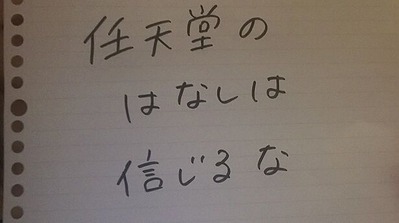 任天堂の
はなしは
信じるな